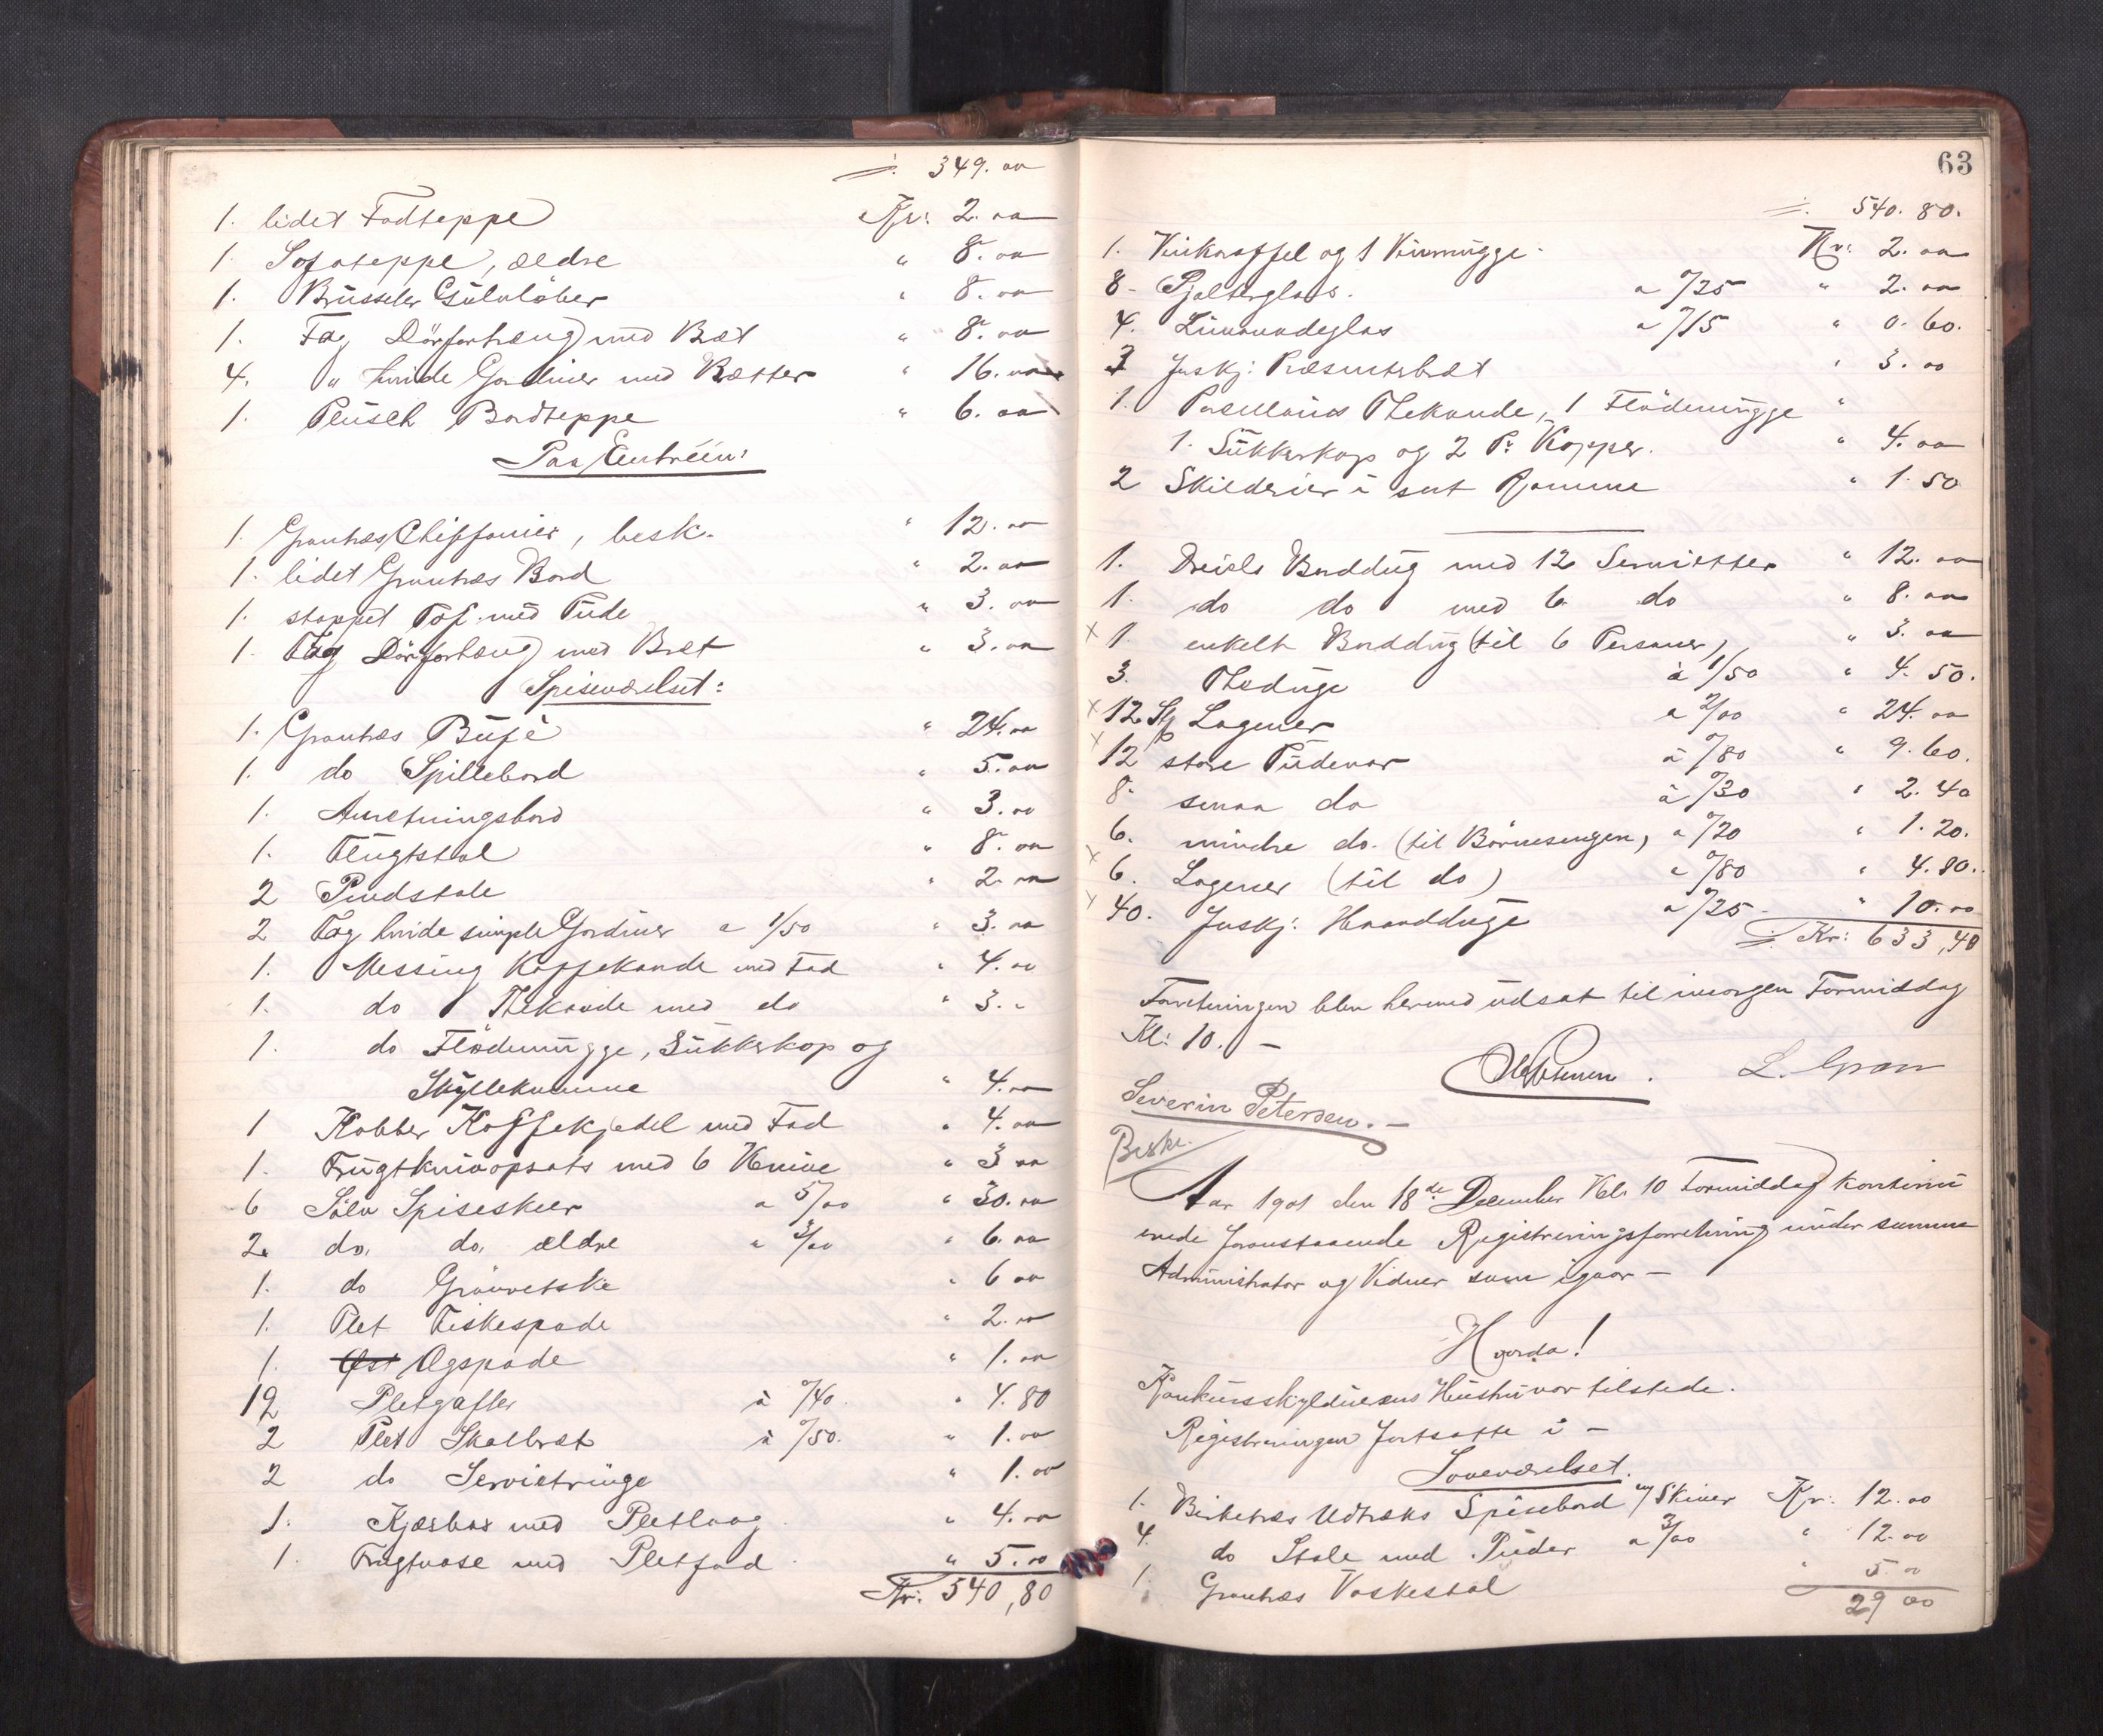 ÷ 349.00
1. lidet Fodteppe Kr: 2.00
1. Sofateppe, ældre " 8.00
1. Brüsseler Gülvlöber " 8.00
1. Fag Dörforhæng med Bræt " 8.00
4. " hvide Gardiner med Brætter " 16.00
1. Plüsch Bordteppe " 6.00
Paa Entréen:
1. Grantræs Chiffonier, besk. " 12.00
1. lidet Grantræs Bord " 2.00
1. stoppet Pof. med Pude " 3.00
1. Fag Dörforhæng med Bræt " 3.00
Spiseværelset:
1. Grantræs Büfé " 24.00
1. do Spillebord " 5.00
1. Anretningsbord " 3.00
1. Flügtstol " 8.00
2 Pindstole " 2.00
2 Fag hvide simple Gardiner a 1/50 " 3.00
1. Messing Kaffekande med Fad " 4.00
1. do Thekande med do " 3. "
1. do Flödemügge, Sükkerkop og
Skyllekumme " 4.00
1 Kobber Kaffekjedel med Fad " 4.00
1. Frügtknivopsats med 6 Knive " 3 00
6 Sölv Spiseskeer a 5/00 " 30.00
2. do. do. ældre a 3/00 " 6.00
1. do Grönvetske " 6 00
1. Plet Fiskespade " 2.00
1. Øst Øgspade " 1.00
12 Pletgafler à 0/40. " 4.80
2 Plet Skalbræt à 0/50. " 1.00
2 do Servietringe " 1.00
1. Kjæxbox med Pletlaag " 4.00
1. Frügtvase med Pletfad " 5.00
Kr: 540,80
63
÷ 540.80.
1. Vinkaraffel og 1 Vinmügge Kr: 2.00
8 Pjolterglas. a 0/25 " 2.00
4. Limonadeglas a 0/15 " 0.60.
3 forskj: Præsenterbræt " 3.00
1. Porcellæns Thekande, 1 Flödemügge "
1. Sükkerkop og 2 Pr Kopper. " 4.00
2 Skilderier i sort Ramme " 1.50
1. Dreiels Borddüg med 12 Servietter " 12.00
1. do do med 6 do " 8.00
x 1. enkelt Borddüg (til 6 Personer) " 3.00
3. Thedüge à 1/50 " 4.50.
x 12 St Lagener a 2/00 " 24.00
x 12 store Püdevar à 0/80 " 9.60.
8 smaa do à 0/30 " 2.40
6. mindre do. (til Börnesengen) a 0/20 " 1.20.
x 6. Lagener (til do) a 0/80 " 4.80.
x 40. forskj: Haanddüge a 0/25 " 10.00
÷ Kr: 633,40
Forretningen blev hermed üdsat til imorgen Formiddag
Kl: 10. –
L. Gran
Severin Petersen. –
Besk.
Aar 1901 den 18de December Kl. 10 Formiddag kontinü
erede foranstaaende Registreringsforretning ünder samme
Administrator og Vidner som igaar –
Hvorda!
Konkürsskyldnerens Hüstrü var tilstede.
Registreringen fortsatte i –
Soveværelset.
1. Birketræs Udtræks Spisebord m/ Skiver Kr: 12.00
4. do Stole med Püder a 3/00 " 12.00
1. Grantræs Vaskestol " 5.00
29 00